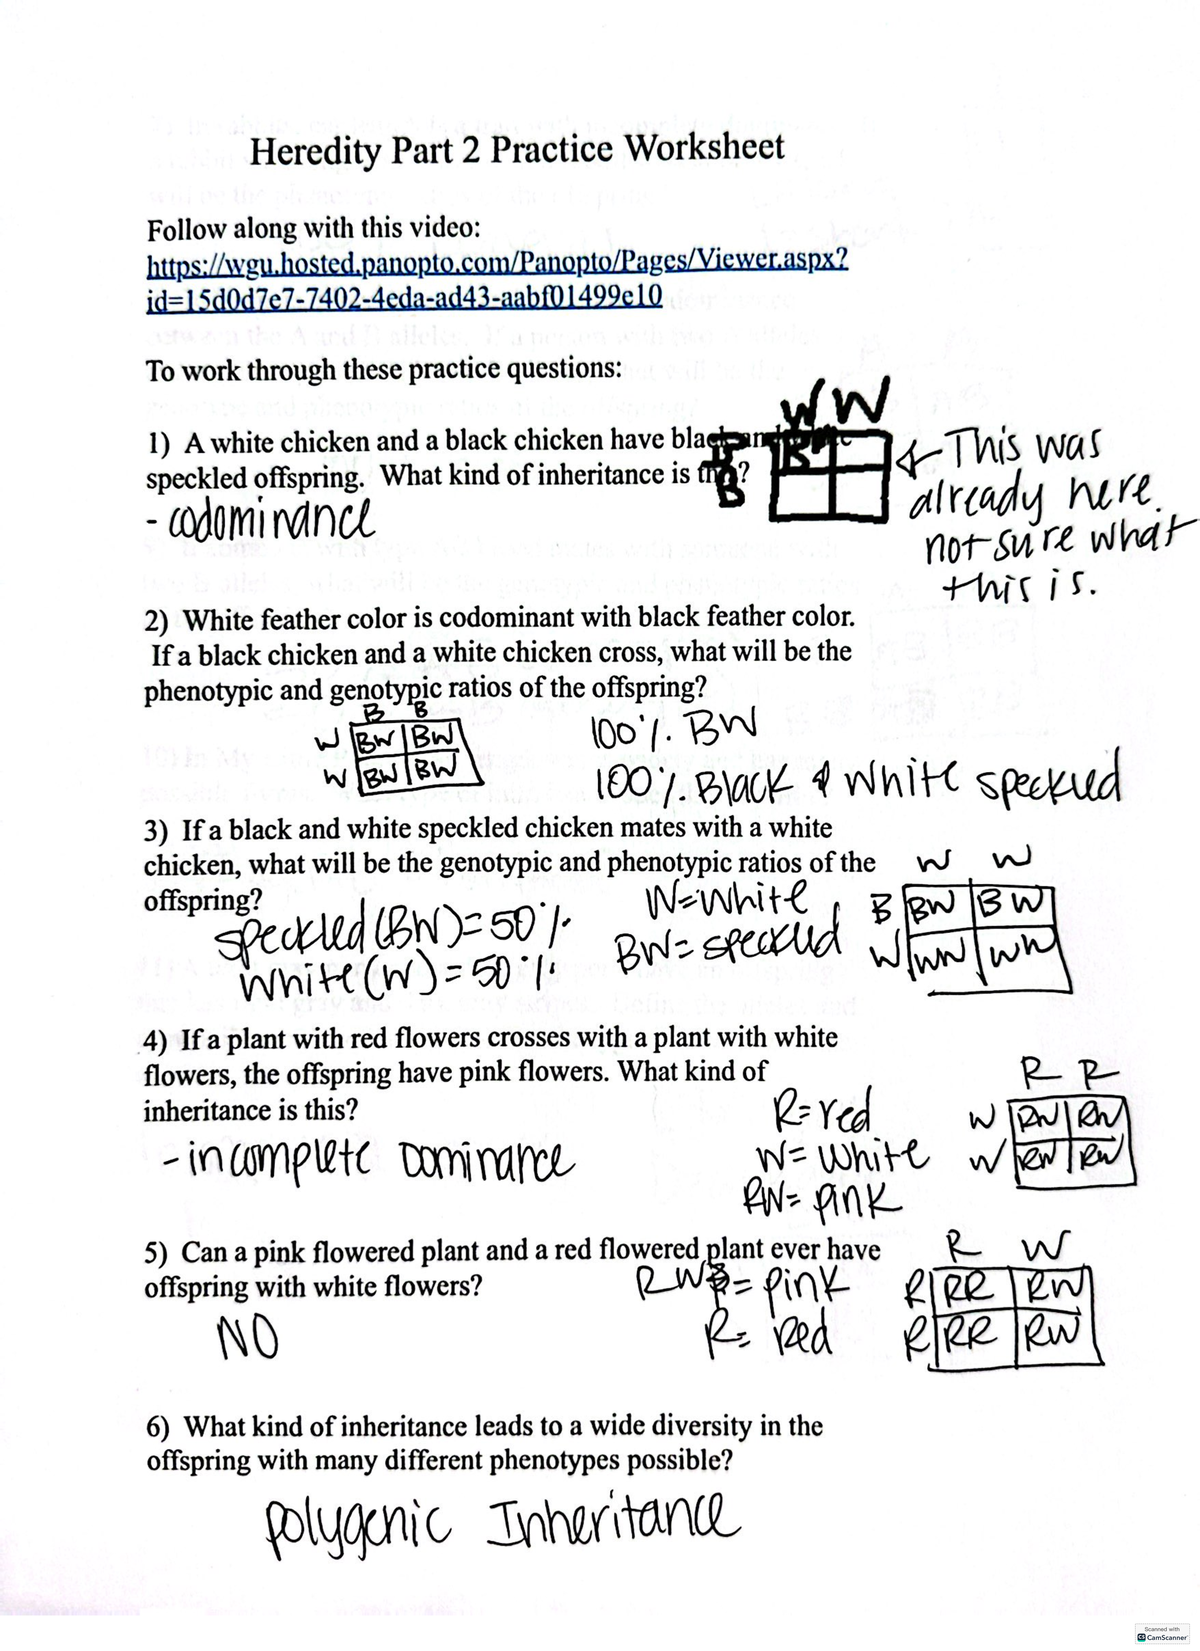 Heredity Part 2 Practice Worksheet
Follow along with this video:
https://wgu.hosted.panopto.com/Panopto/Pages/Viewer.aspx?
id=15d0d7e7-7402-4eda-ad43-aabf01499e10
To work through these practice questions:
W W
1) A white chicken and a black chicken have black and white
speckled offspring. What kind of inheritance is this?
B
B
- codominance
← This was
already here.
not sure what
this is.
2) White feather color is codominant with black feather color.
If a black chicken and a white chicken cross, what will be the
phenotypic and genotypic ratios of the offspring?
B B
W BW BW
W BW BW
100% BW
100% Black & White speckled
3) If a black and white speckled chicken mates with a white
chicken, what will be the genotypic and phenotypic ratios of the
offspring?
speckled (BW) = 50%
White (W) = 50%
W = White
BW = speckled
W W
B BW BW
W WW WW
4) If a plant with red flowers crosses with a plant with white
flowers, the offspring have pink flowers. What kind of
inheritance is this?
- incomplete Dominance
R = red
W = White
RW = pink
R R
W RW RW
W RW RW
5) Can a pink flowered plant and a red flowered plant ever have
offspring with white flowers?
NO
RW = pink
R = Red
R W
R RR RW
R RR RW
6) What kind of inheritance leads to a wide diversity in the
offspring with many different phenotypes possible?
polygenic Inheritance
Scanned with
CS CamScanner